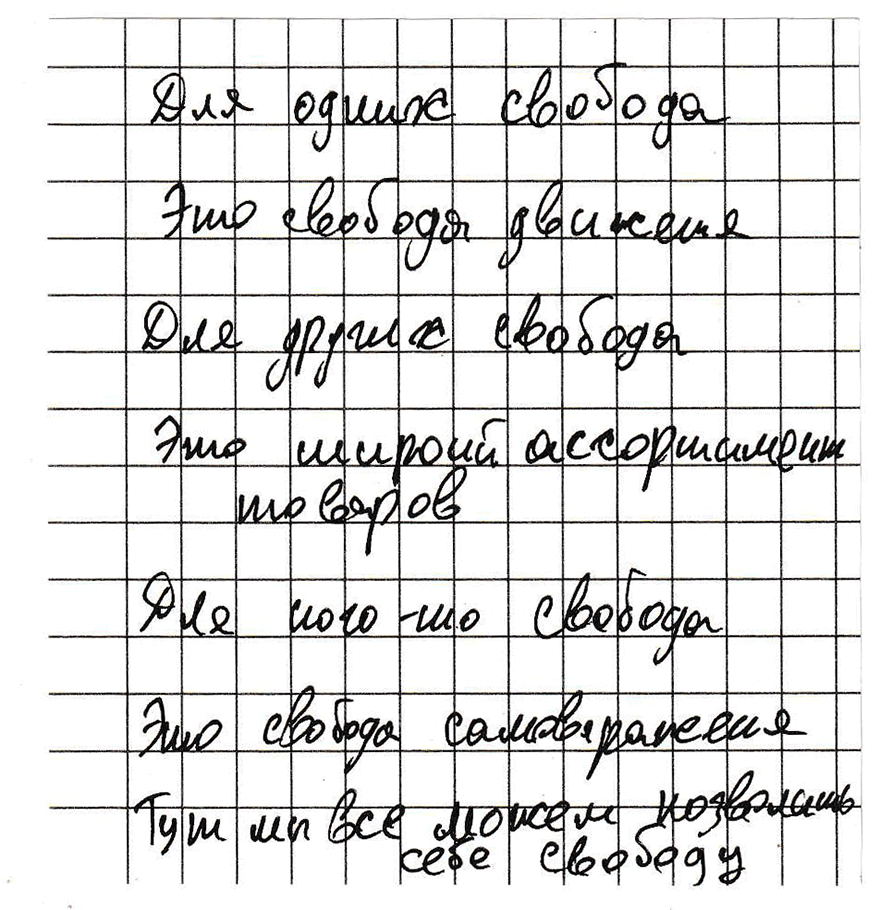 Для одних свобода
Это свобода движения
Для других свобода
Это широкий ассортимент
товаров
Для кого-то свобода
Это свобода самовыражения
Тут мы все можем позволить
себе свободу